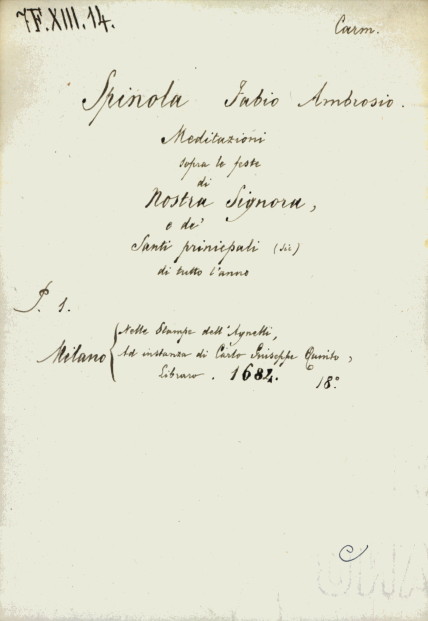 7F.XIII.14.
Carm.
Spinola Fabio Ambrosio.
Meditazioni
sopra le feste
di
Nostra Signora,
e de'
Santi principali (sic)
di tutto l'anno
P. 1.
Nelle Stampe dell'Agnelli,
Milano Ad instanza di Carlo Giuseppe Quinto,
Libraro. 1684. 18°